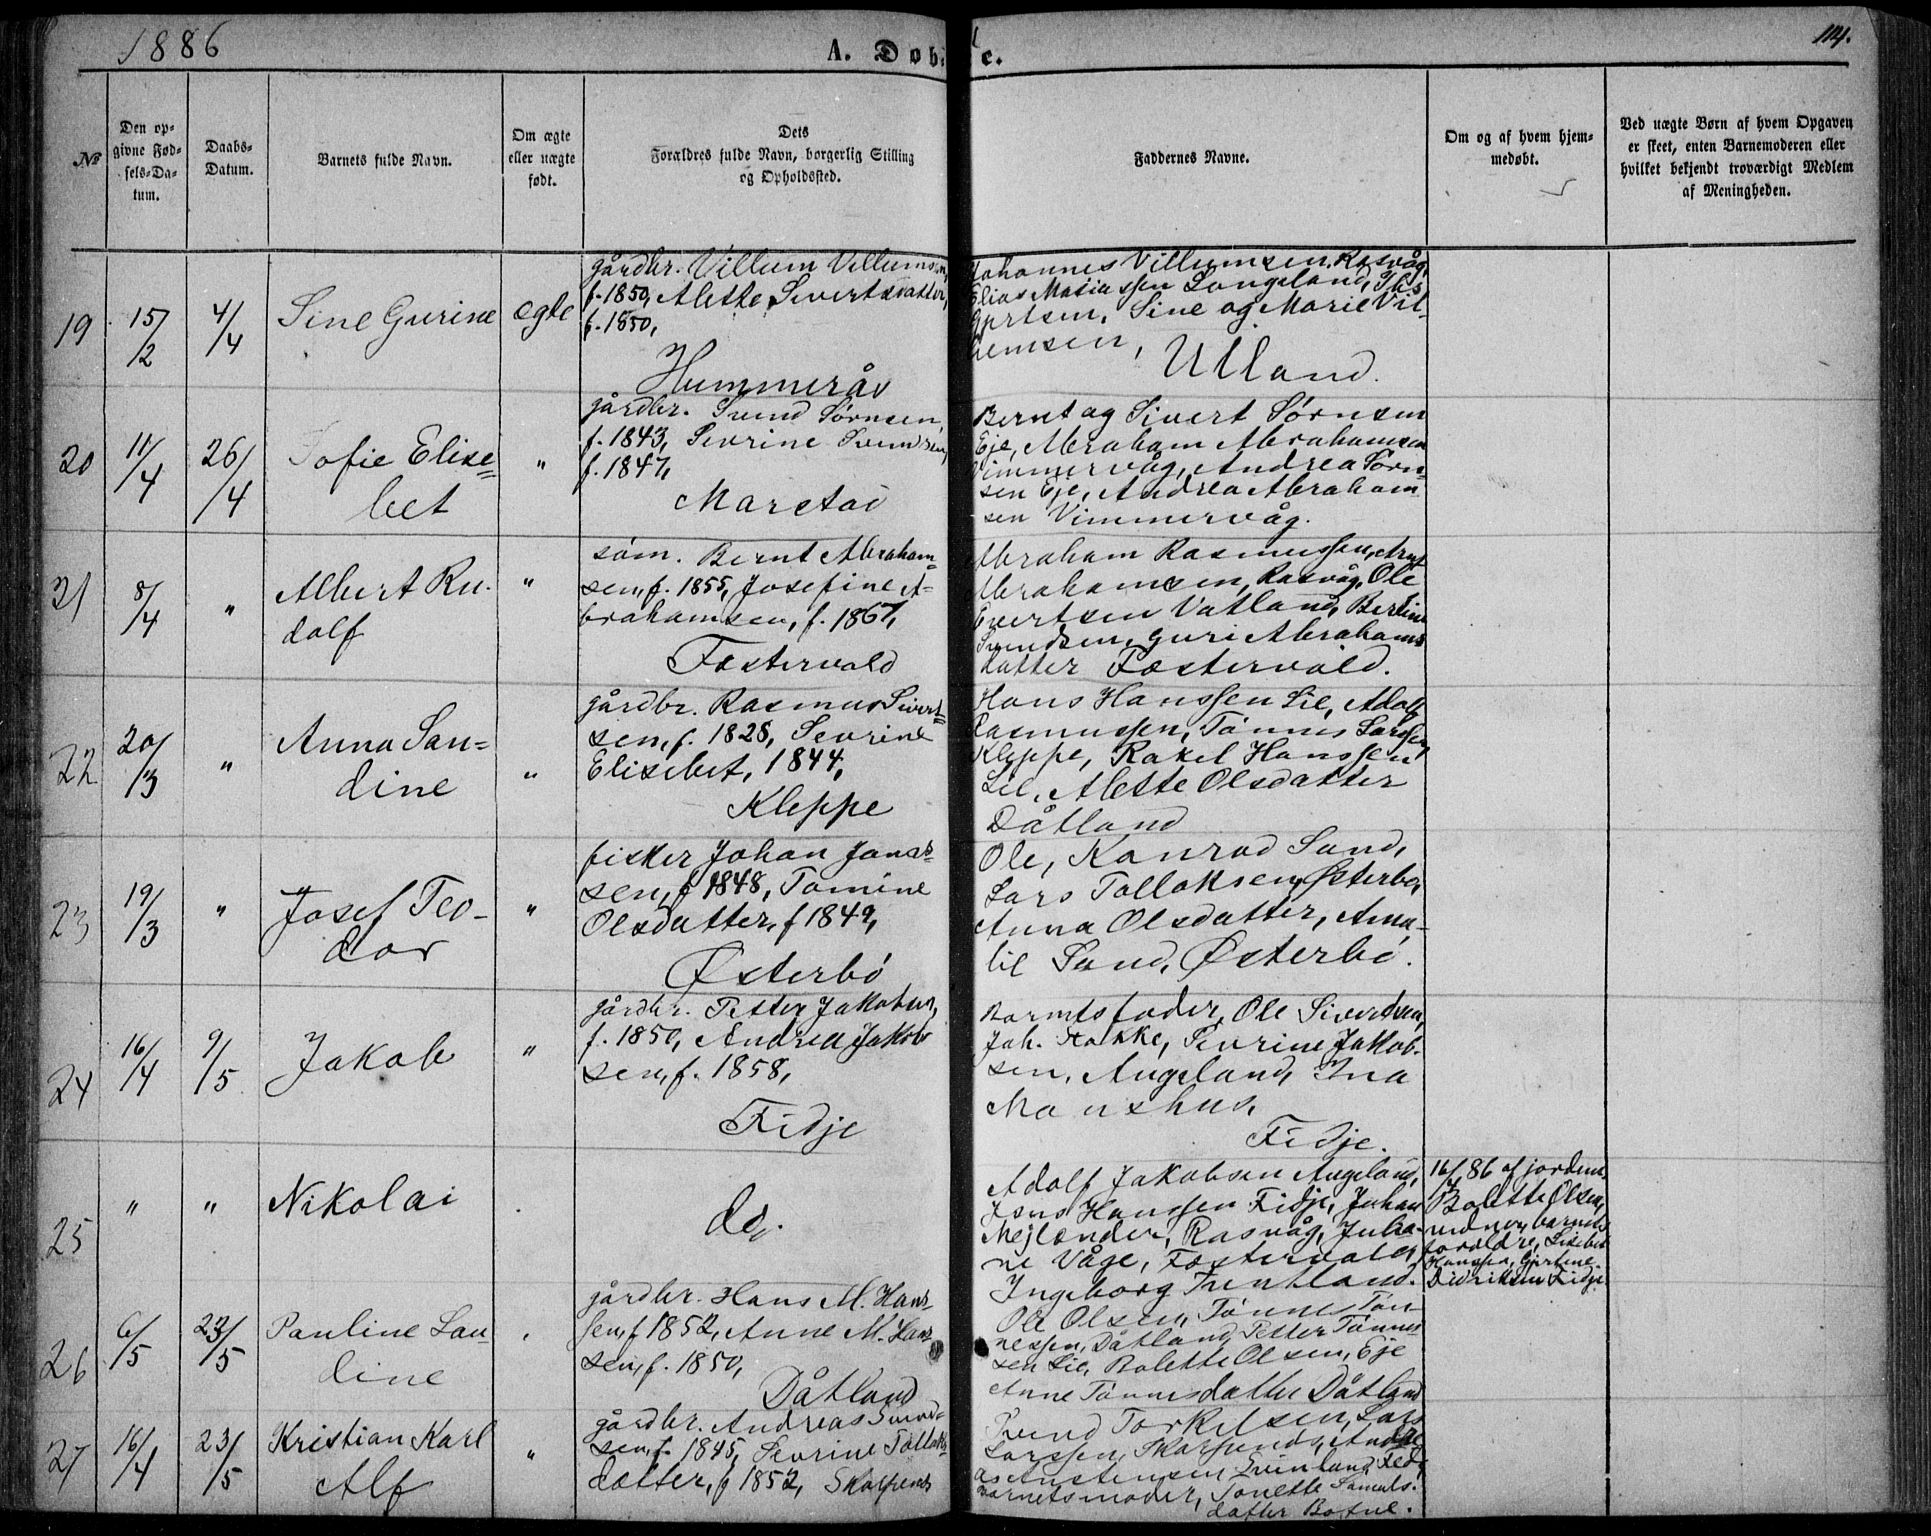 1886
A. Døb
e.
114.
№
Den op-
givne Fød-
sels-Da-
tum.
Daabs-
Datum.
Barnets fulde Navn.
Om ægte
eller uægte
født.
Dets
Forældres fulde Navn, borgerlig Stilling
og Opholdssted.
Faddernes Navne.
Om og af hvem hjem-
medøbt.
Ved uægte Børn af hvem Opgaven
er skeet, enten Barnemoderen eller
hvilket bekjendt troværdigt Medlem
af Menigheden.
19
15/2
4/4
Sine Gurine
egte
gårdbr. Villum Villumsen,
f. 1850, Alette Sivertsdatter,
f. 1850,
Hummerås
Johannes Villumsen, Rasvåg,
Elias Mathiassen Longeland,
Sine og Marie Vil-
lemsen,
Ulland.
20
11/4
26/4
Sofie Elise-
bet
"
gårdbr. Svend Sørnsen,
f. 1843, Sevrine Svendsen,
f. 1847,
Marstøl
Bernt og Sivert Sørnsen
Eje, Abraham Abrahamsen
Vimmervåg, Andrea Sørn-
sen Eje, Andrea Abraham
sen Vimmervåg.
21
8/4
"
Albert Ru-
dolf
"
søm. Bernt Abraham-
sen, f. 1855, Josefine A-
brahamsen, f. 1867,
Fostervold
Abraham Rasmussen, Arnt
Abrahamsen, Rasvåg, Ole
Evertsen Vatland, Bertine
Svendsen, Guri Abrahams
datter Fostervold.
22
20/3
"
Anna San-
dine
"
gårdbr. Rasmus Sivert-
sen, f. 1828, Sevrine
Elisebet, 1844,
Kleppe
Hans Hanssen Lie, Adolf
Rasmussen, Tønnes Larssen
Kleppe, Rakel Hanssen
Lie, Alette Olsdatter
Dåtland
23
19/3
"
Josef Teo-
dor
"
fisker Johan Jonas-
sen, f 1848, Tomine
Olsdatter, f 1849,
Østerbø
Ole, Konrad Sand,
Lars Tollaksen, Østerbø,
Anna Olsdatter, Ama-
lie Sand, Østerbø.
24
16/4
9/5
Jakob
"
gårdbr. Petter Jakobsen,
f. 1850, Andrea Jakob
sen, f. 1858,
Fidje
Barnetsfader, Ole Sivertsen,
Joh. Stakke, Sevrine Jakob-
sen, Augeland, Ina
Monshus,
Fidje.
25
"
"
Nikolai
.
do.
Adolf Jakobsen Augeland,
Jens Hanssen Fidje, Johan
Mejlænder, Rasvåg, Juha-
ne Våge, Fostervold,
Ingeborg Trentland.
16/4 86 af jordem.
Bolette Olsen,
nærv. barnets
forældre, Lisebet
Hanssen, Gjertine
Didriksen Fidje
26
6/5
23/5
Pauline Lau
dine
.
gårdbr. Hans M. Hans-
sen, f 1852, Anne M. Hans
sen, f. 1850,
Dåtland
Ole Olsen, Tønnes Tøn
nessen, Dåtland, Petter Tønnes-
sen Lie, Bolette Olsen, Eje
Anne Tønnesdatter Dåtland
27
16/4
23/5
Kristian Karl
Alf
"
gårdbr. Andreas Svend-
sen, f. 1845, Sevrine Tollaks
datter, f 1852, Skarpenes
Svend Torkelsen, Lars
Larssen, Skarpenes, Andre
as Austensen Svinland, Fede
barnetsmoder, Tonette Samuels-
datter Botne.